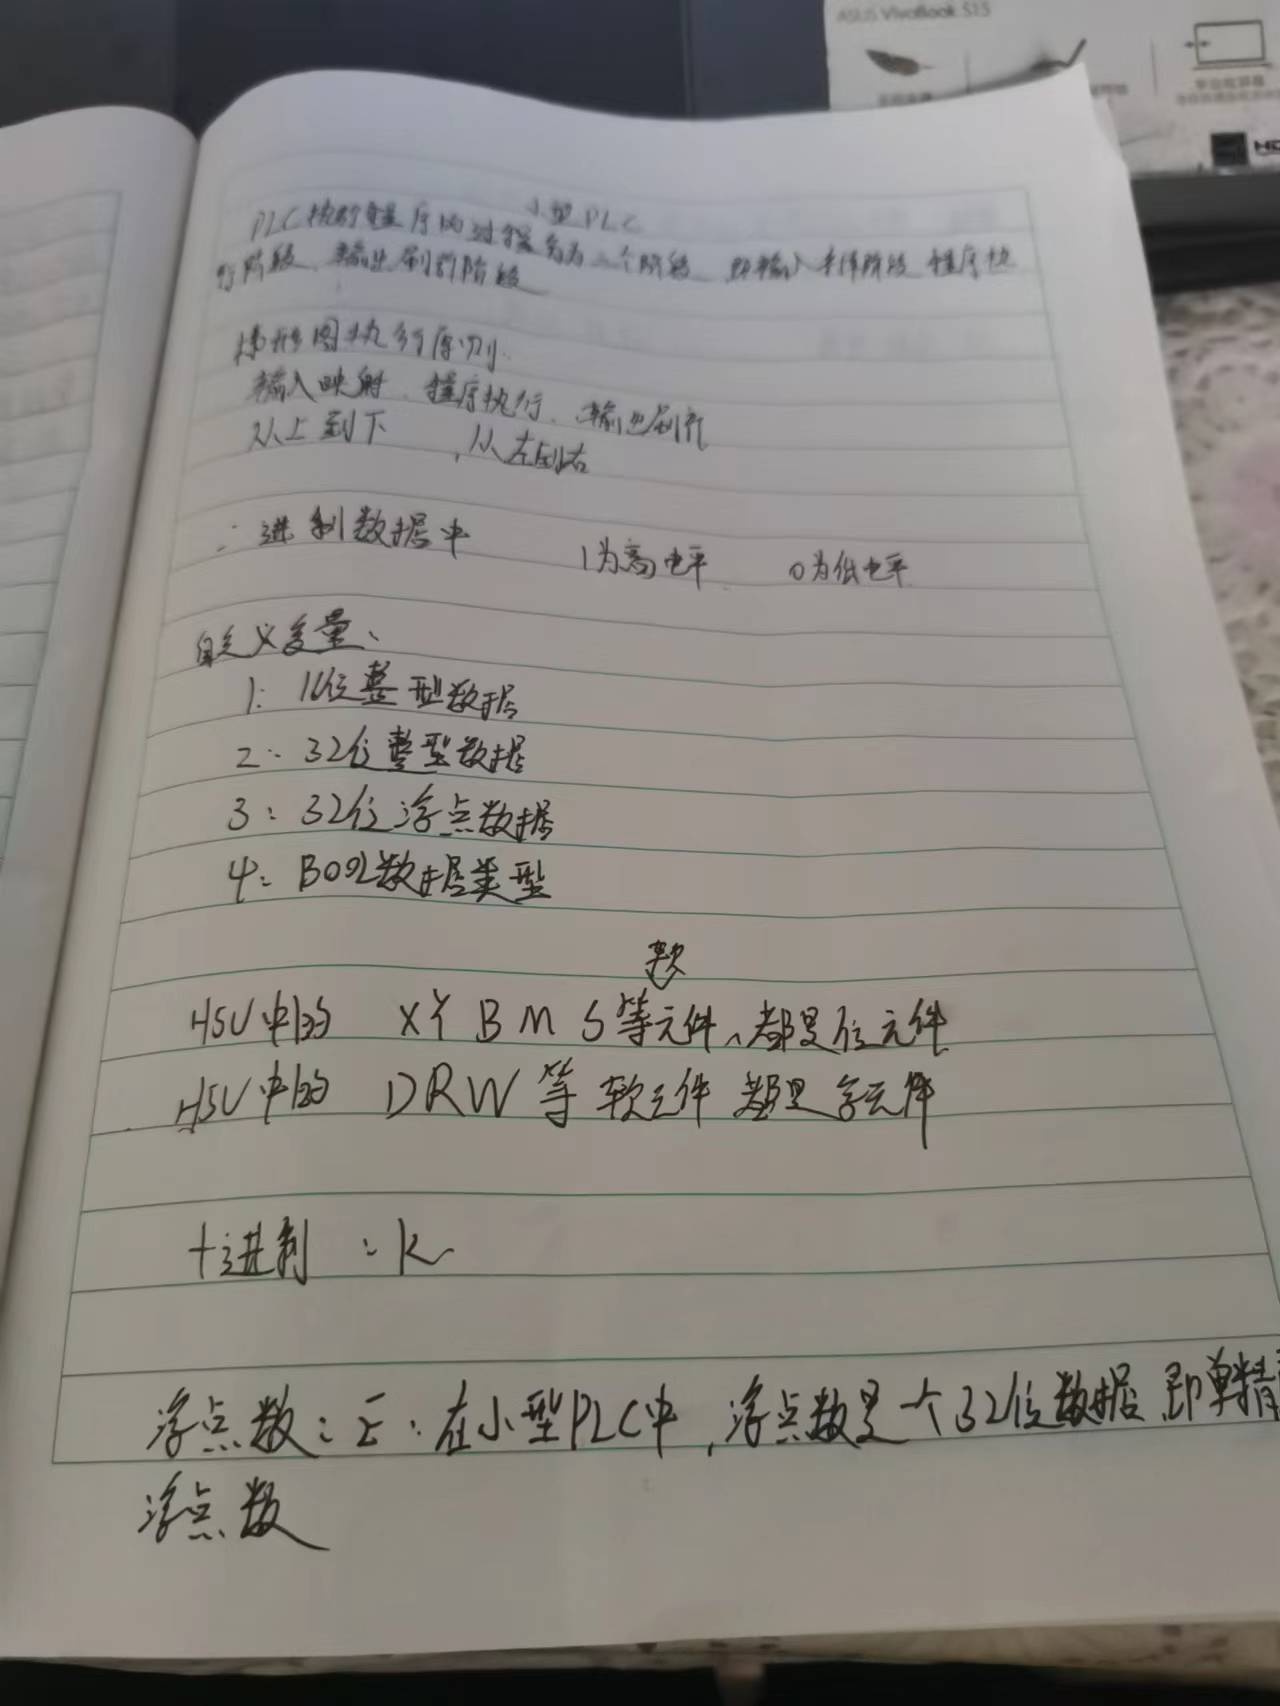 ASUS VivoBook S15
小型PLC
PLC执行程序的过程分为三个阶段 即输入采样阶段 程序执
行阶段、输出刷新阶段
梯形图执行原则:
输入映射、程序执行、输出刷新
从上到下,从左到右
二进制数据中 1为高电平 0为低电平
自定义变量、
1: 16位整型数据
2: 32位整型数据
3: 32位浮点数据
4: BOOL数据类型
软
H5U中的 XYBMS等元件、都是位元件
H5U中的 DRW等软元件 都是字元件
十进制:K
浮点数:E:在小型PLC中,浮点数是一个32位数据 即单精
浮点数